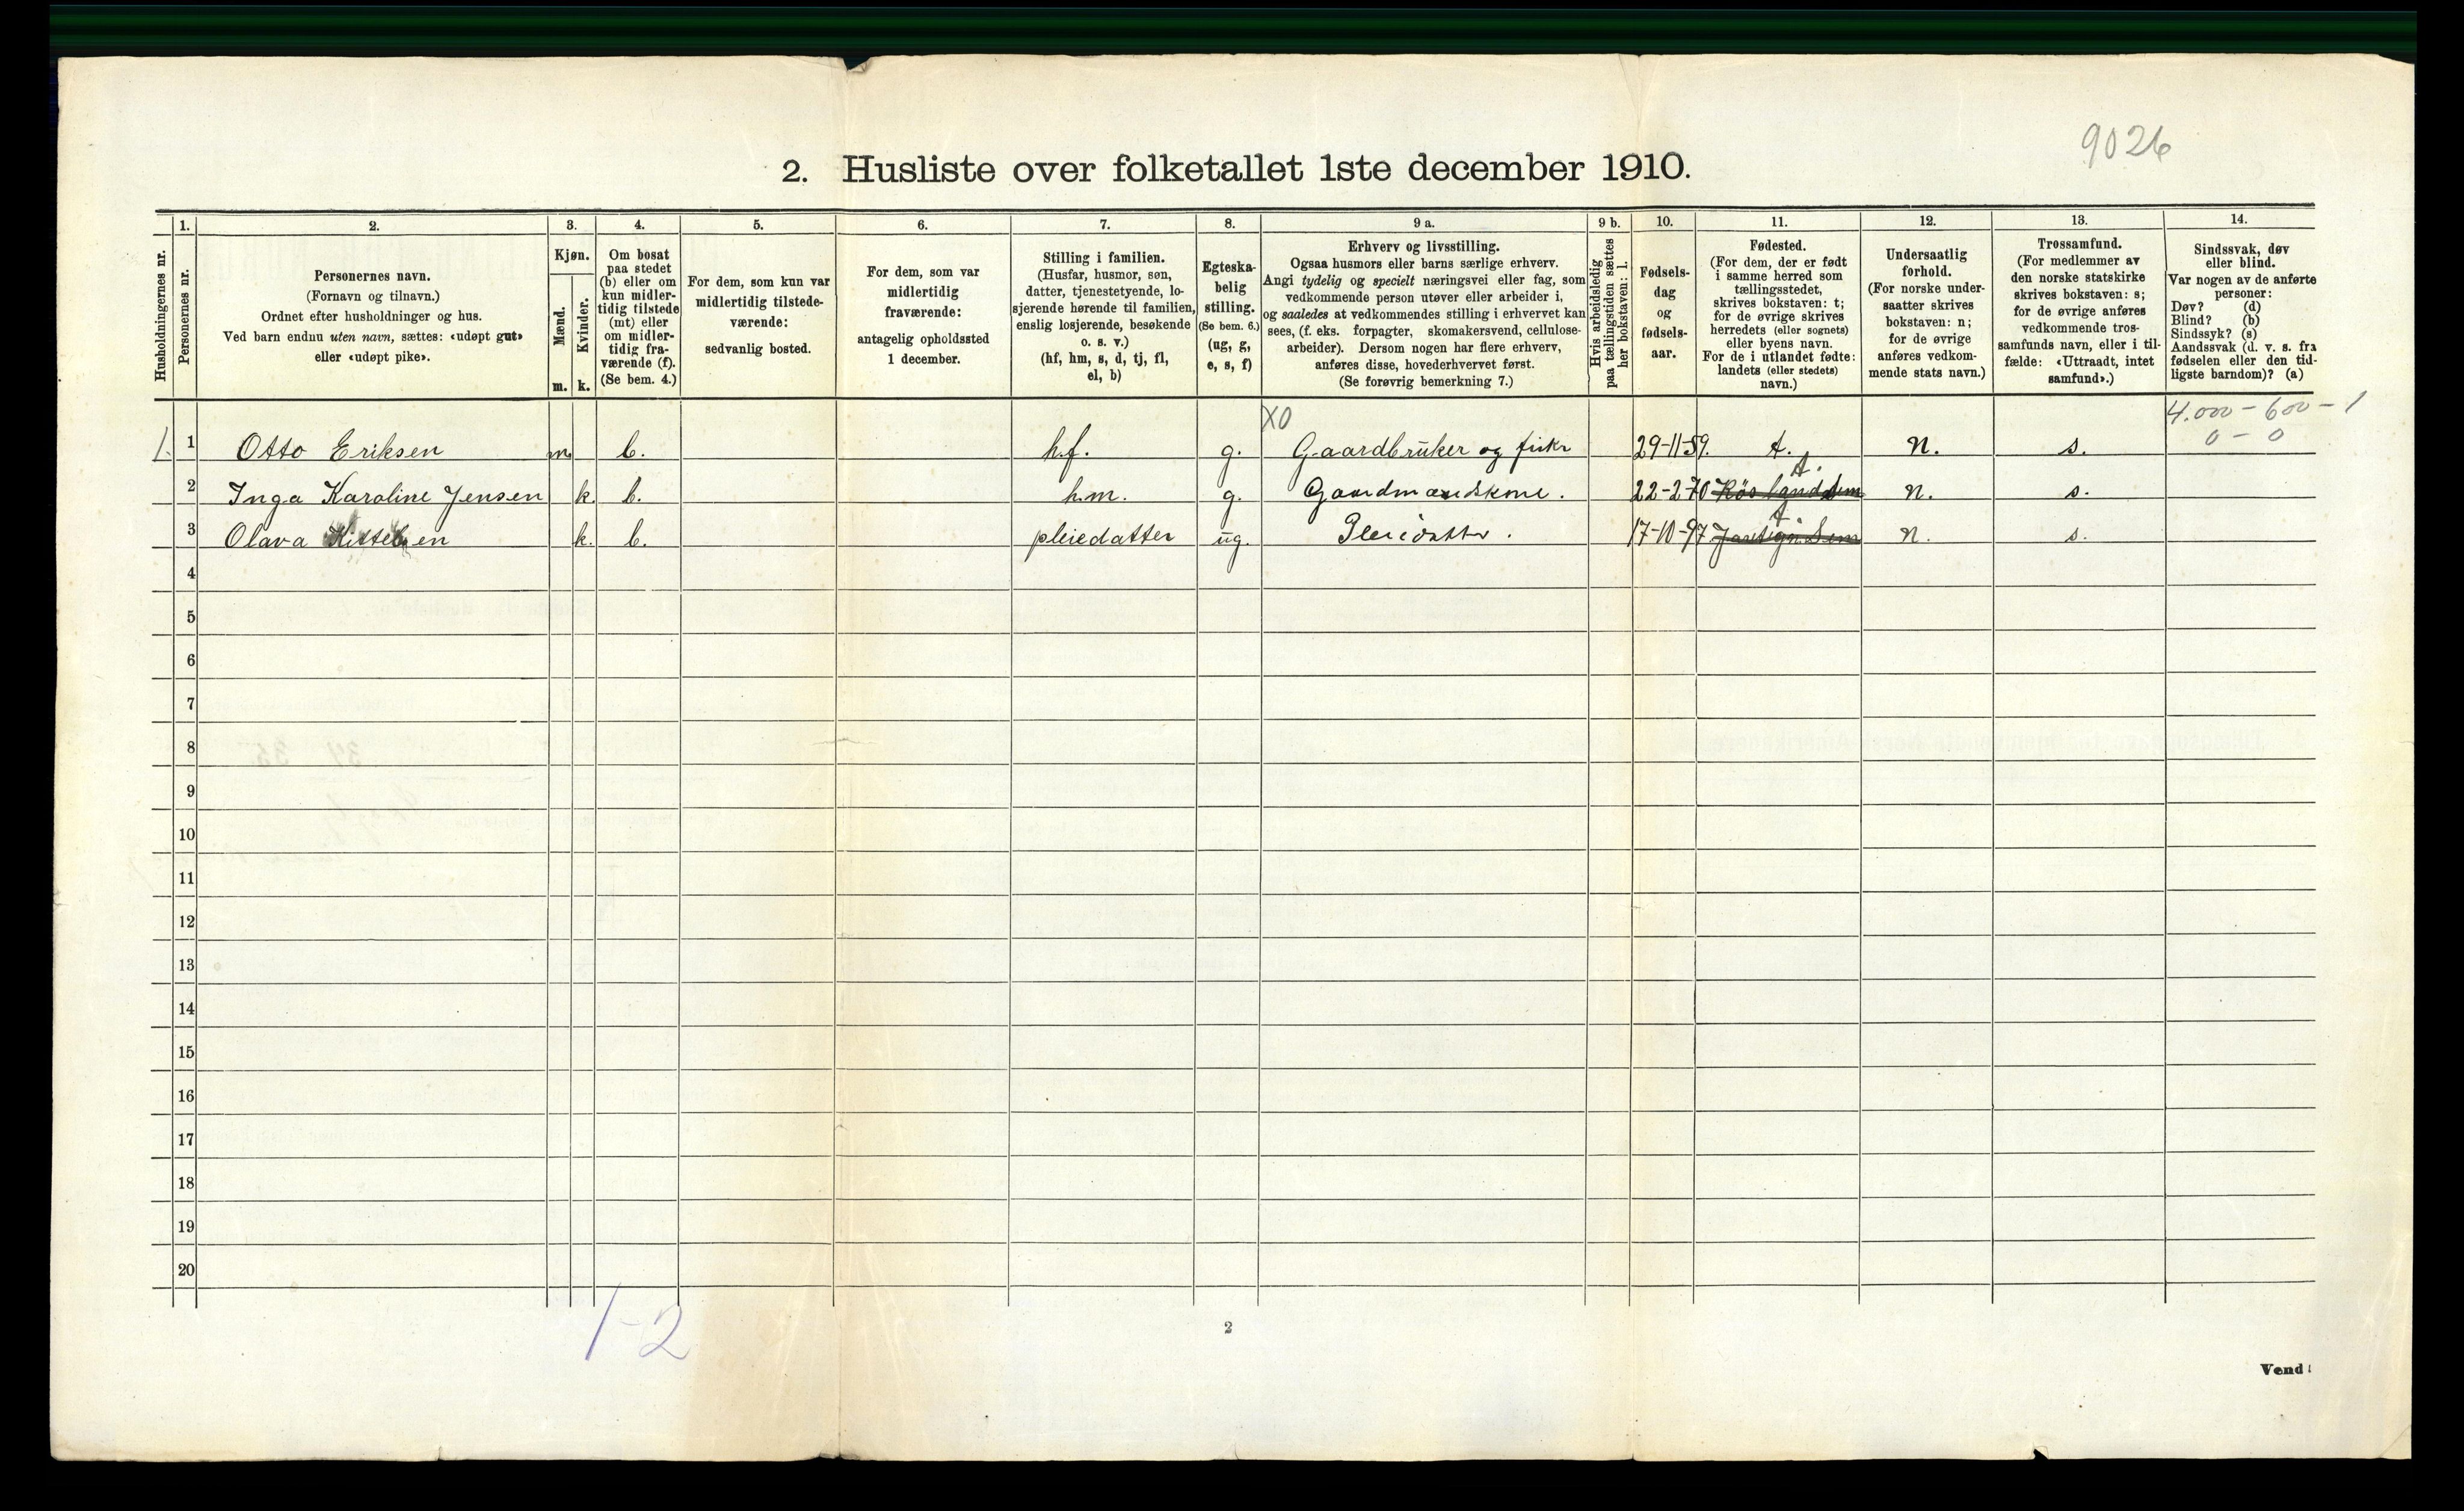 9026
2. Husliste over folketallet 1ste december 1910.
Husholdningernes nr.
1.
Personernes nr.
2.
Personernes navn.
(Fornavn og tilnavn.)
Ordnet efter husholdninger og hus.
Ved barn endnu uten navn, sættes: «udøpt gut»
eller «udøpt pike».
3.
Kjøn.
Mænd.
m.
Kvinder.
k.
4.
Om bosat
paa stedet
(b) eller om
kun midler-
tidig tilstede
(mt) eller
om midler-
tidig fra-
værende (f).
(Se bem. 4.)
5.
For dem, som kun var
midlertidig tilstede-
værende:
sedvanlig bosted.
6.
For dem, som var
midlertidig
fraværende:
antagelig opholdssted
1 december.
7.
Stilling i familien.
(Husfar, husmor, søn,
datter, tjenestetyende, lo-
sjerende hørende til familien,
enslig losjerende, besøkende
o. s. v.)
(hf, hm, s, d, tj, fl,
el, b)
8.
Egteska-
belig
stilling.
(Se bem. 6.)
(ug, g,
e, s, f)
9 a.
Erhverv og livsstilling.
Ogsaa husmors eller barns særlige erhverv.
Angi tydelig og specielt næringsvei eller fag, som
vedkommende person utøver eller arbeider i,
og saaledes at vedkommendes stilling i erhvervet kan
sees, (f. eks. forpagter, skomakersvend, cellulose-
arbeider). Dersom nogen har flere erhverv,
anføres disse, hovederhvervet først.
(Se forøvrig bemerkning 7.)
9 b.
Hvis arbeidsledig
paa tællingstiden sættes
her bokstaven: l.
10.
Fødsels-
dag
og
fødsels-
aar.
11.
Fødested.
(For dem, der er født
i samme herred som
tællingsstedet,
skrives bokstaven: t;
for de øvrige skrives
herredets (eller sognets)
eller byens navn.
For de i utlandet fødte:
landets (eller stedets)
navn.)
12.
Undersaatlig
forhold.
(For norske under-
saatter skrives
bokstaven: n;
for de øvrige
anføres vedkom-
mende stats navn.)
13.
Trossamfund.
(For medlemmer av
den norske statskirke
skrives bokstaven: s;
for de øvrige anføres
vedkommende tros-
samfunds navn, eller i til-
fælde: «Uttraadt, intet
samfund».)
14.
Sindssvak, døv
eller blind.
Var nogen av de anførte
personer:
Døv? (d)
Blind? (b)
Sindssyk? (s)
Aandssvak (d. v. s. fra
fødselen eller den tid-
ligste barndom)? (a)
XO 4.000 - 600 - 1
0 - 0
1. 1 Otto Eriksen m b. h.f. g. Gaardbruker og fisker 29-11-59. t. n. s.
t.
2 Inga Karoline Jensen k. b. h.m. g. Gaardmandskone. 22-2-70 n. s.
t
3 Olava Kittelsen k. b. pleiedatter ug. Pleiedatter. 17-10-97 n. s.
4
5
6
7
8
9
10
11
12
13
14
15
16
17
18
19
20
1-2
2
Vend!